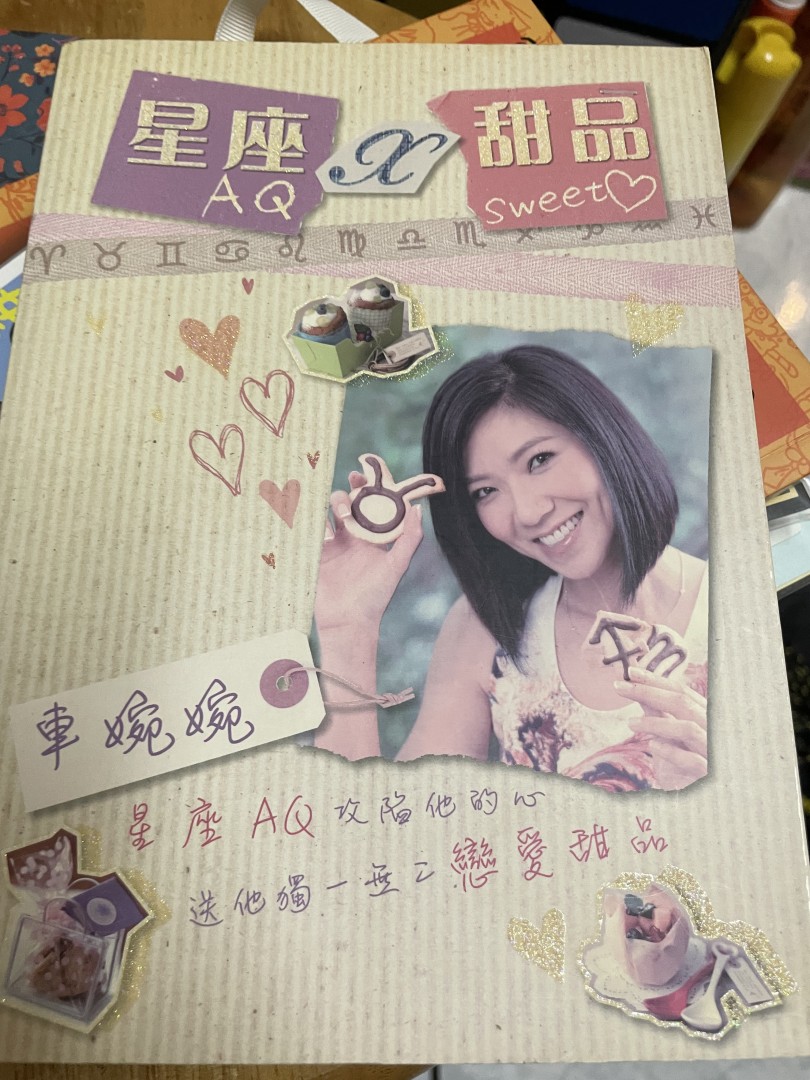 星座 X 甜品
AQ sweet♡
♈ ♉ ♊ ♋ ♌ ♍ ♎ ♏ ♐ ♑ ♒ ♓
車婉婉
星座AQ攻陷他的心
送他獨一無二戀愛甜品